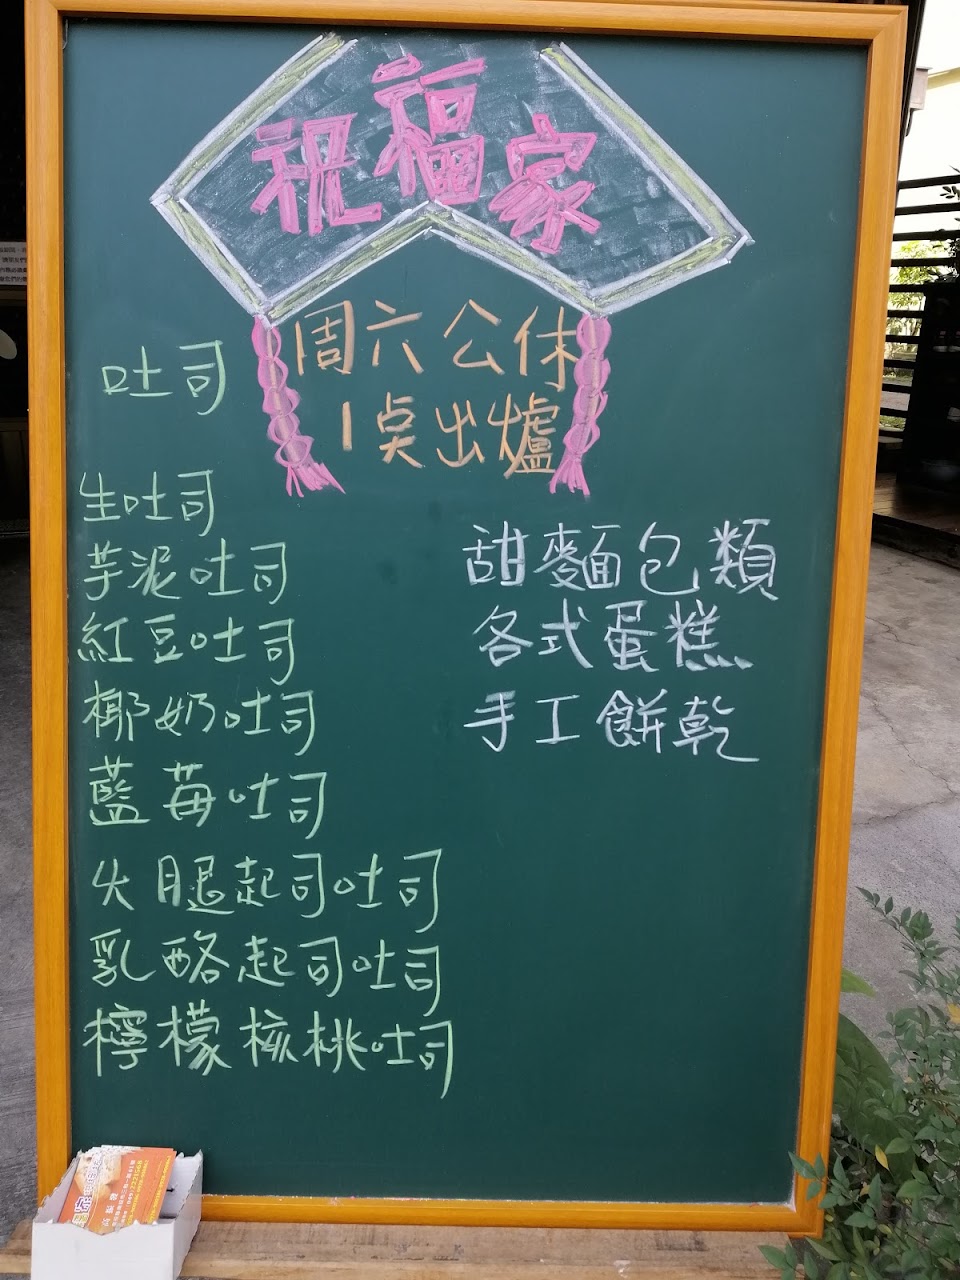 祝福家
周六公休
1点出爐
吐司
生吐司
芋泥吐司
紅豆吐司
椰奶吐司
藍莓吐司
火腿起司吐司
乳酪起司吐司
檸檬核桃吐司
甜麵包類
各式蛋糕
手工餅乾